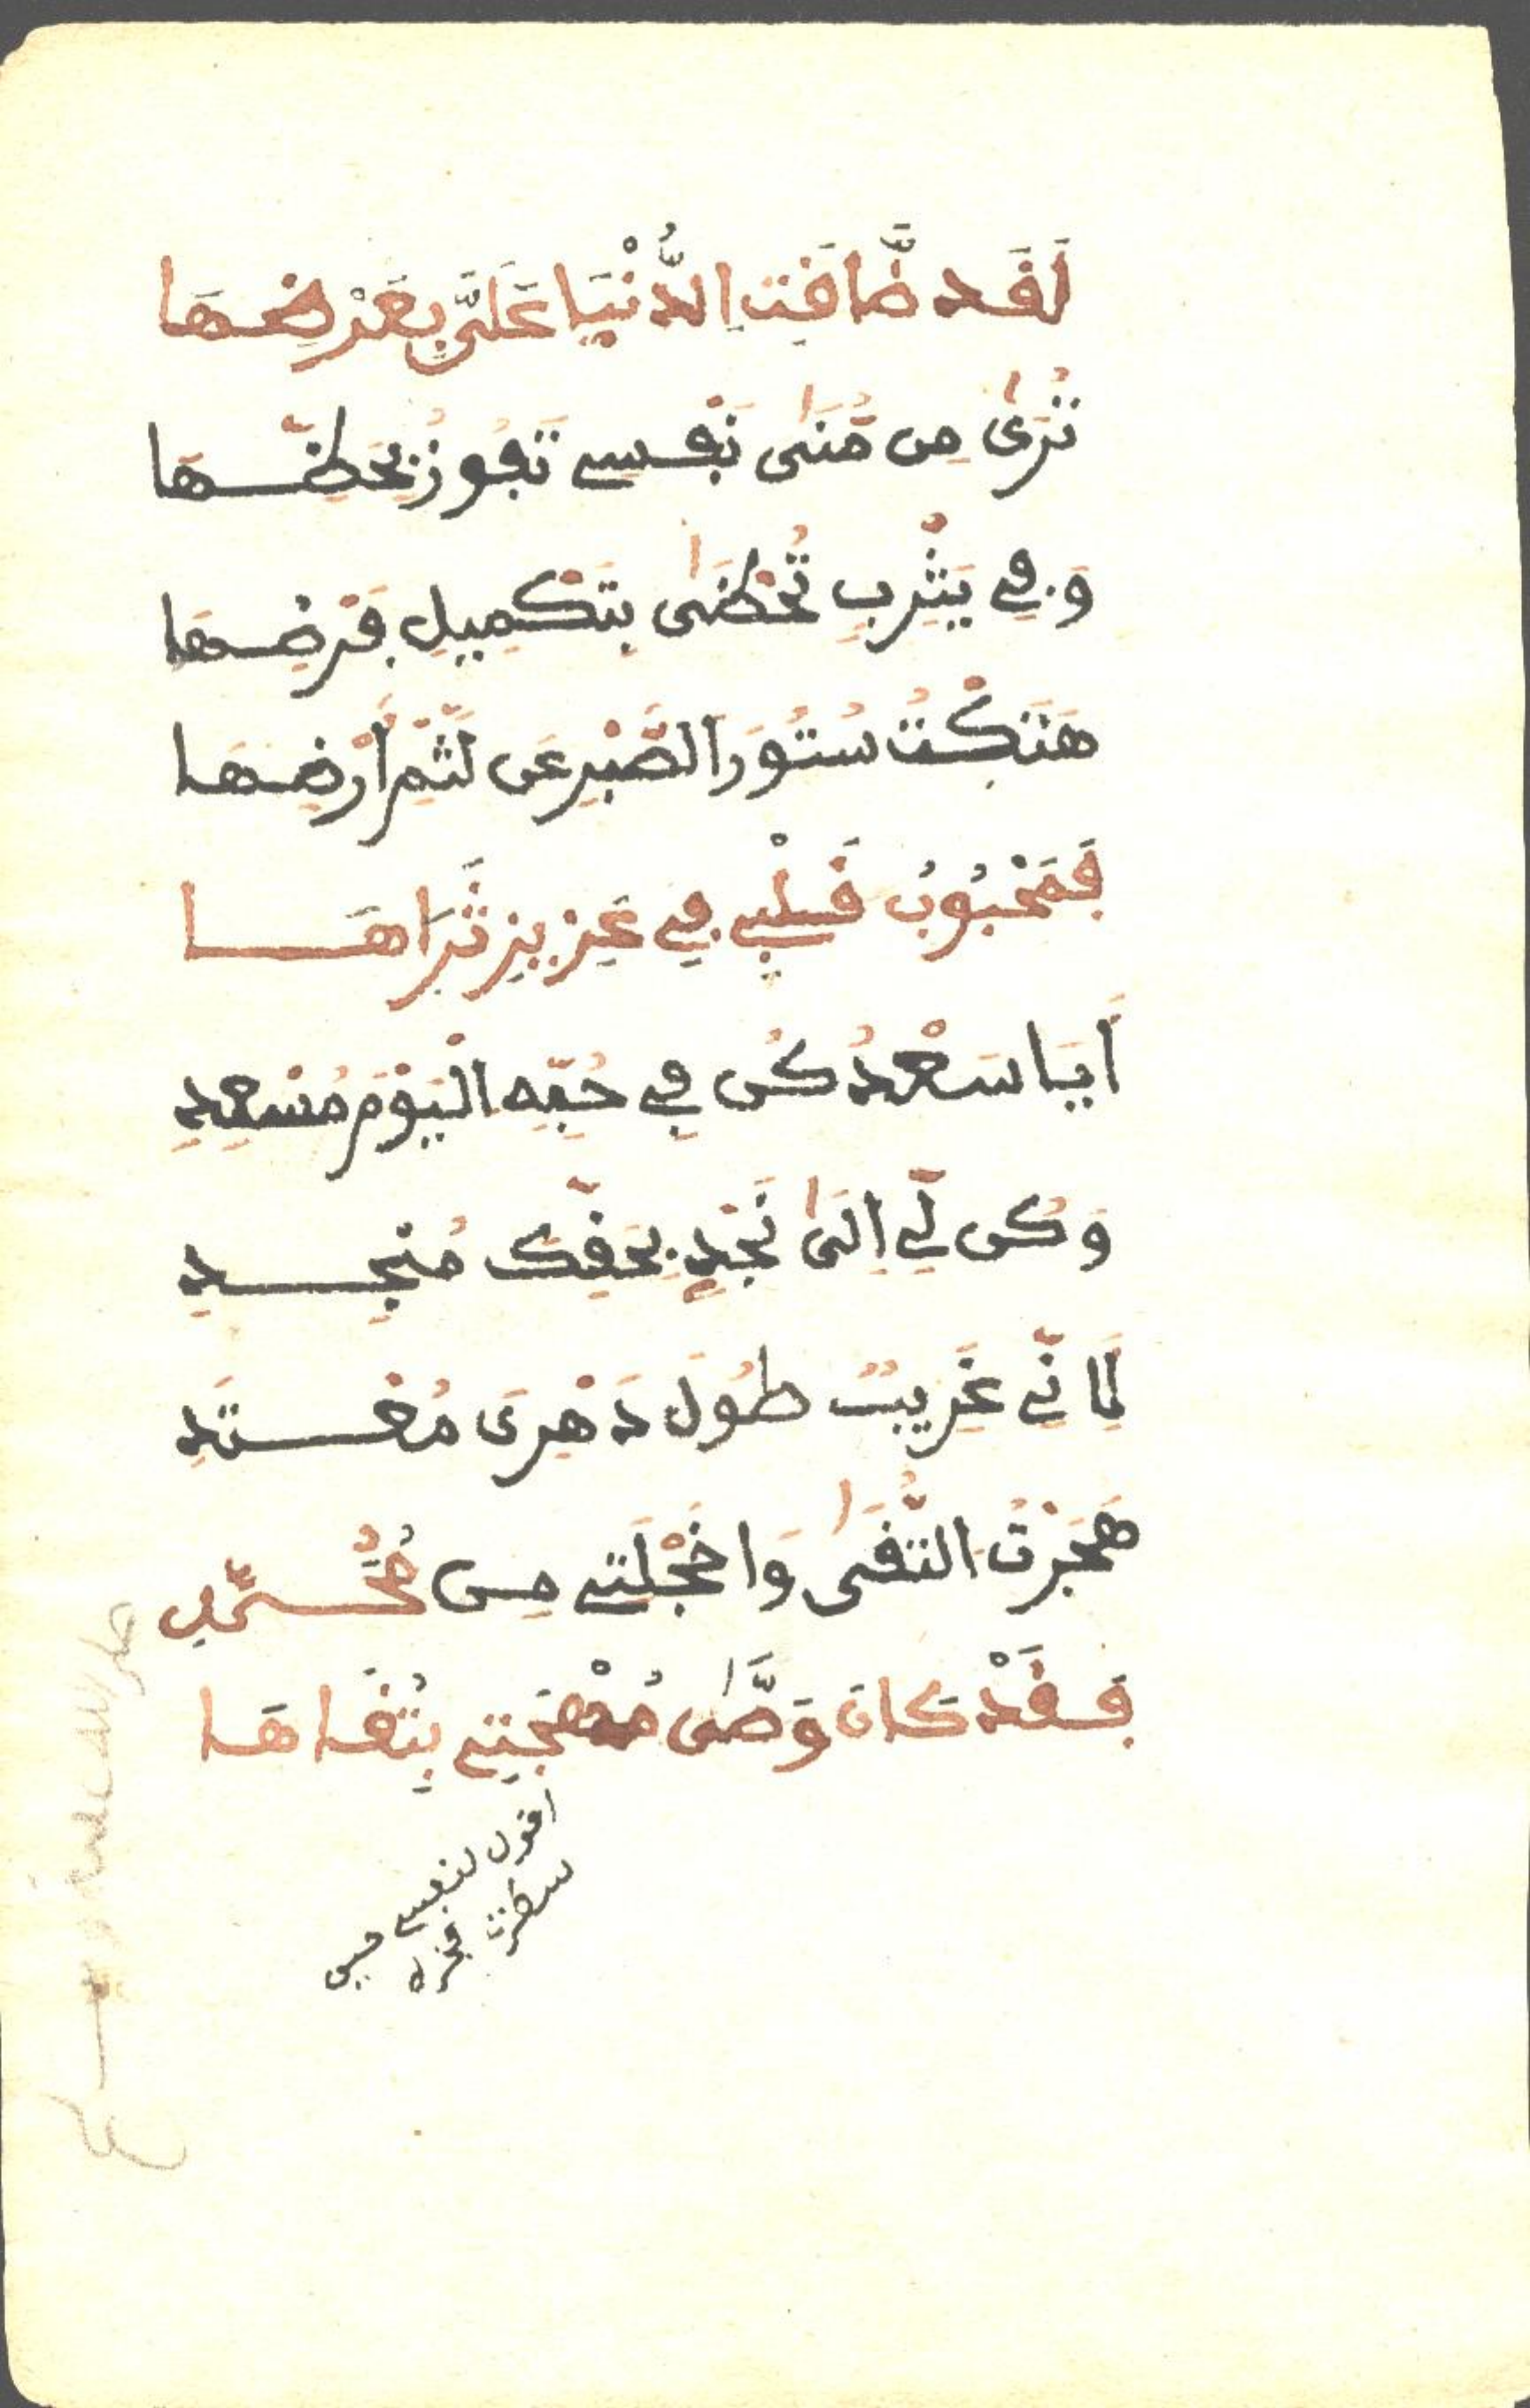 لَقَد ظَّاقَتِ اِلدُّنْيَا عَلَيَّ بِعَرْضِهَا
تُرَىٰ مِن مُّنَىٰ نَفْسِے تَفُوزُ بِحَظِّهَا
وَفِے يَثْرِبٍ تُحْظَىٰ بِتَكْمِيلِ فَرْضِهَا
هَتَكْتُ سُتُورَ الصَّبْرِ عَن لَّثْمِ أَرْضِهَا
فَمَحْبُوبُ قَلْبِے فِے عَزِيزِ ثَرَاهَا
أَيَا سَعْدُ كُن فِے حُبِّهِ الْيَوْمَ مُسْعِدِ
وَكُن لِّے اِلَىٰ نَجْدٍ بِحَقِّكَ مُنْجِدِ
لِأَنِّے غَرِيبٌ طُولَ دَهْرِى مُفْسَدِ
هَجَرْتُ التُّقَىٰ وَاخَجْلَتِے مِن مُّحَمَّدٍ
فَقَدْ كَانَ وَصَّىٰ مُهْجَتِے بِتُقَاهَا
اقول لنفسے حين
سطرت فخره